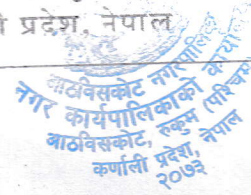 प्रदेश, नेपाल
आठबिसकोट नगरपालिका
नगर कार्यपालिकाको कार्यालय
आठबिसकोट, रुकुम (पश्चिम)
कर्णाली प्रदेश, नेपाल
२०७३